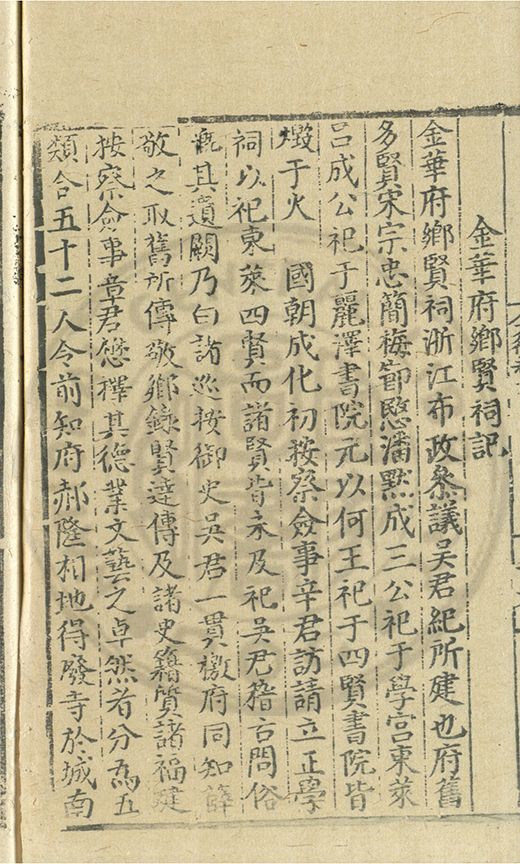 金華府鄉賢祠記
金華府鄉賢祠浙江布政叅議吳君紀所建也府舊
多賢宋宗忠簡梅節愍潘默成三公祀于學宮東萊
呂成公祀于麗澤書院元以何王祀于四賢書院皆
燬于火 國朝成化初按察僉事辛君訪請立正學
祠以祀東萊四賢而諸賢皆未及祀吳君稽古問俗
慨其遺闕乃白諸巡按御史吳君一貫檄府同知薛
敬之取舊所傳敬鄉錄賢達傳及諸史籍質諸福建
按察僉事章君懋擇其德業文藝之卓然者分為五
類合五十二人今前知府郝隆相地得廢寺於城南